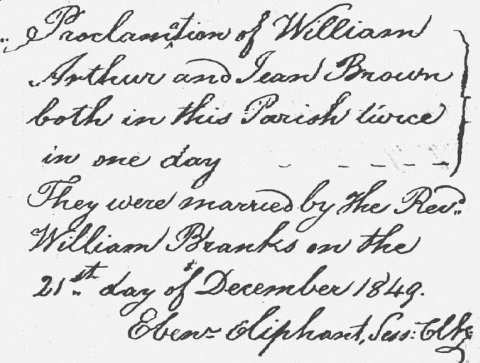 Proclamation of William
Arthur and Jean Brown
both in this Parish twice
in one day
They were married by the Revd.
William Branks on the
21st. day of December 1849.
Ebenr Oliphant, Sess: Clk